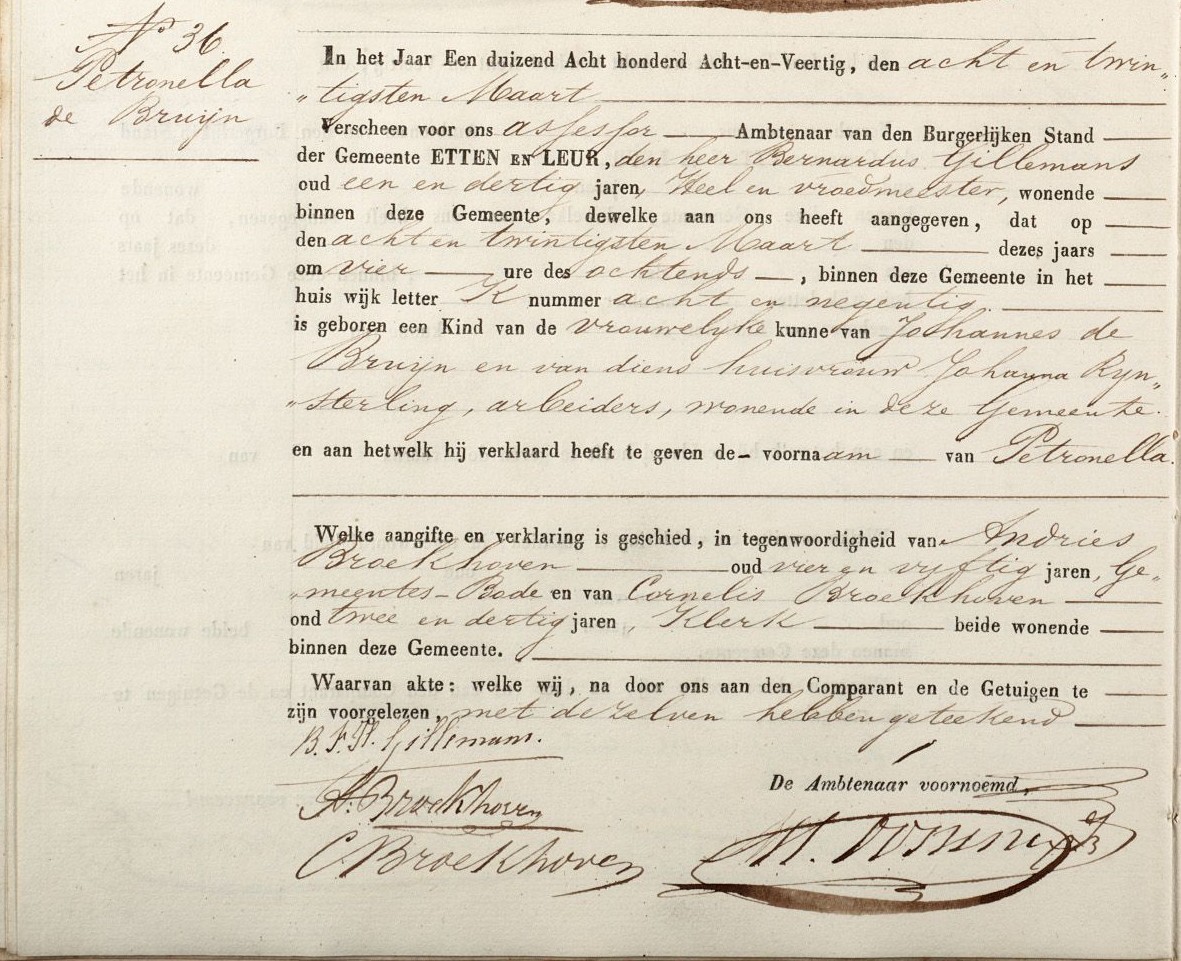 No 36.
Petronella
de Bruijn
In het Jaar Een duizend Acht honderd Acht-en-Veertig, den acht en twin„
„tigsten Maart
Verscheen voor ons assessor Ambtenaar van den Burgerlijken Stand
der Gemeente ETTEN EN LEUR, den heer Bernardus Gillemans
oud een en dertig jaren, Heel en vroedmeester, wonende
binnen deze Gemeente, dewelke aan ons heeft aangegeven, dat op
den acht en twintigsten Maart dezes jaars
om vier ure des ochtends, binnen deze Gemeente in het
huis wijk letter K nummer acht en negentig.
is geboren een Kind van de vrouwelyke kunne van Johannes de
Bruijn en van diens huisvrouw Johanna Ryn„
„sterling, arbeiders, wonende in deze Gemeente.
en aan hetwelk hij verklaard heeft te geven de- voornaam van Petronella.
Welke aangifte en verklaring is geschied, in tegenwoordigheid van Andries
Broekhoven oud vier en vyftig jaren, Ge„
„meentes-Bode en van Cornelis Broekhoven
oud twee en dertig jaren, Klerk beide wonende
binnen deze Gemeente.
Waarvan akte: welke wij, na door ons aan den Comparant en de Getuigen te
zijn voorgelezen, met dezelven hebben geteekend
B. F. H. Gillemans.
De Ambtenaar voornoemd,
A. Broekhoven
C. Broekhoven